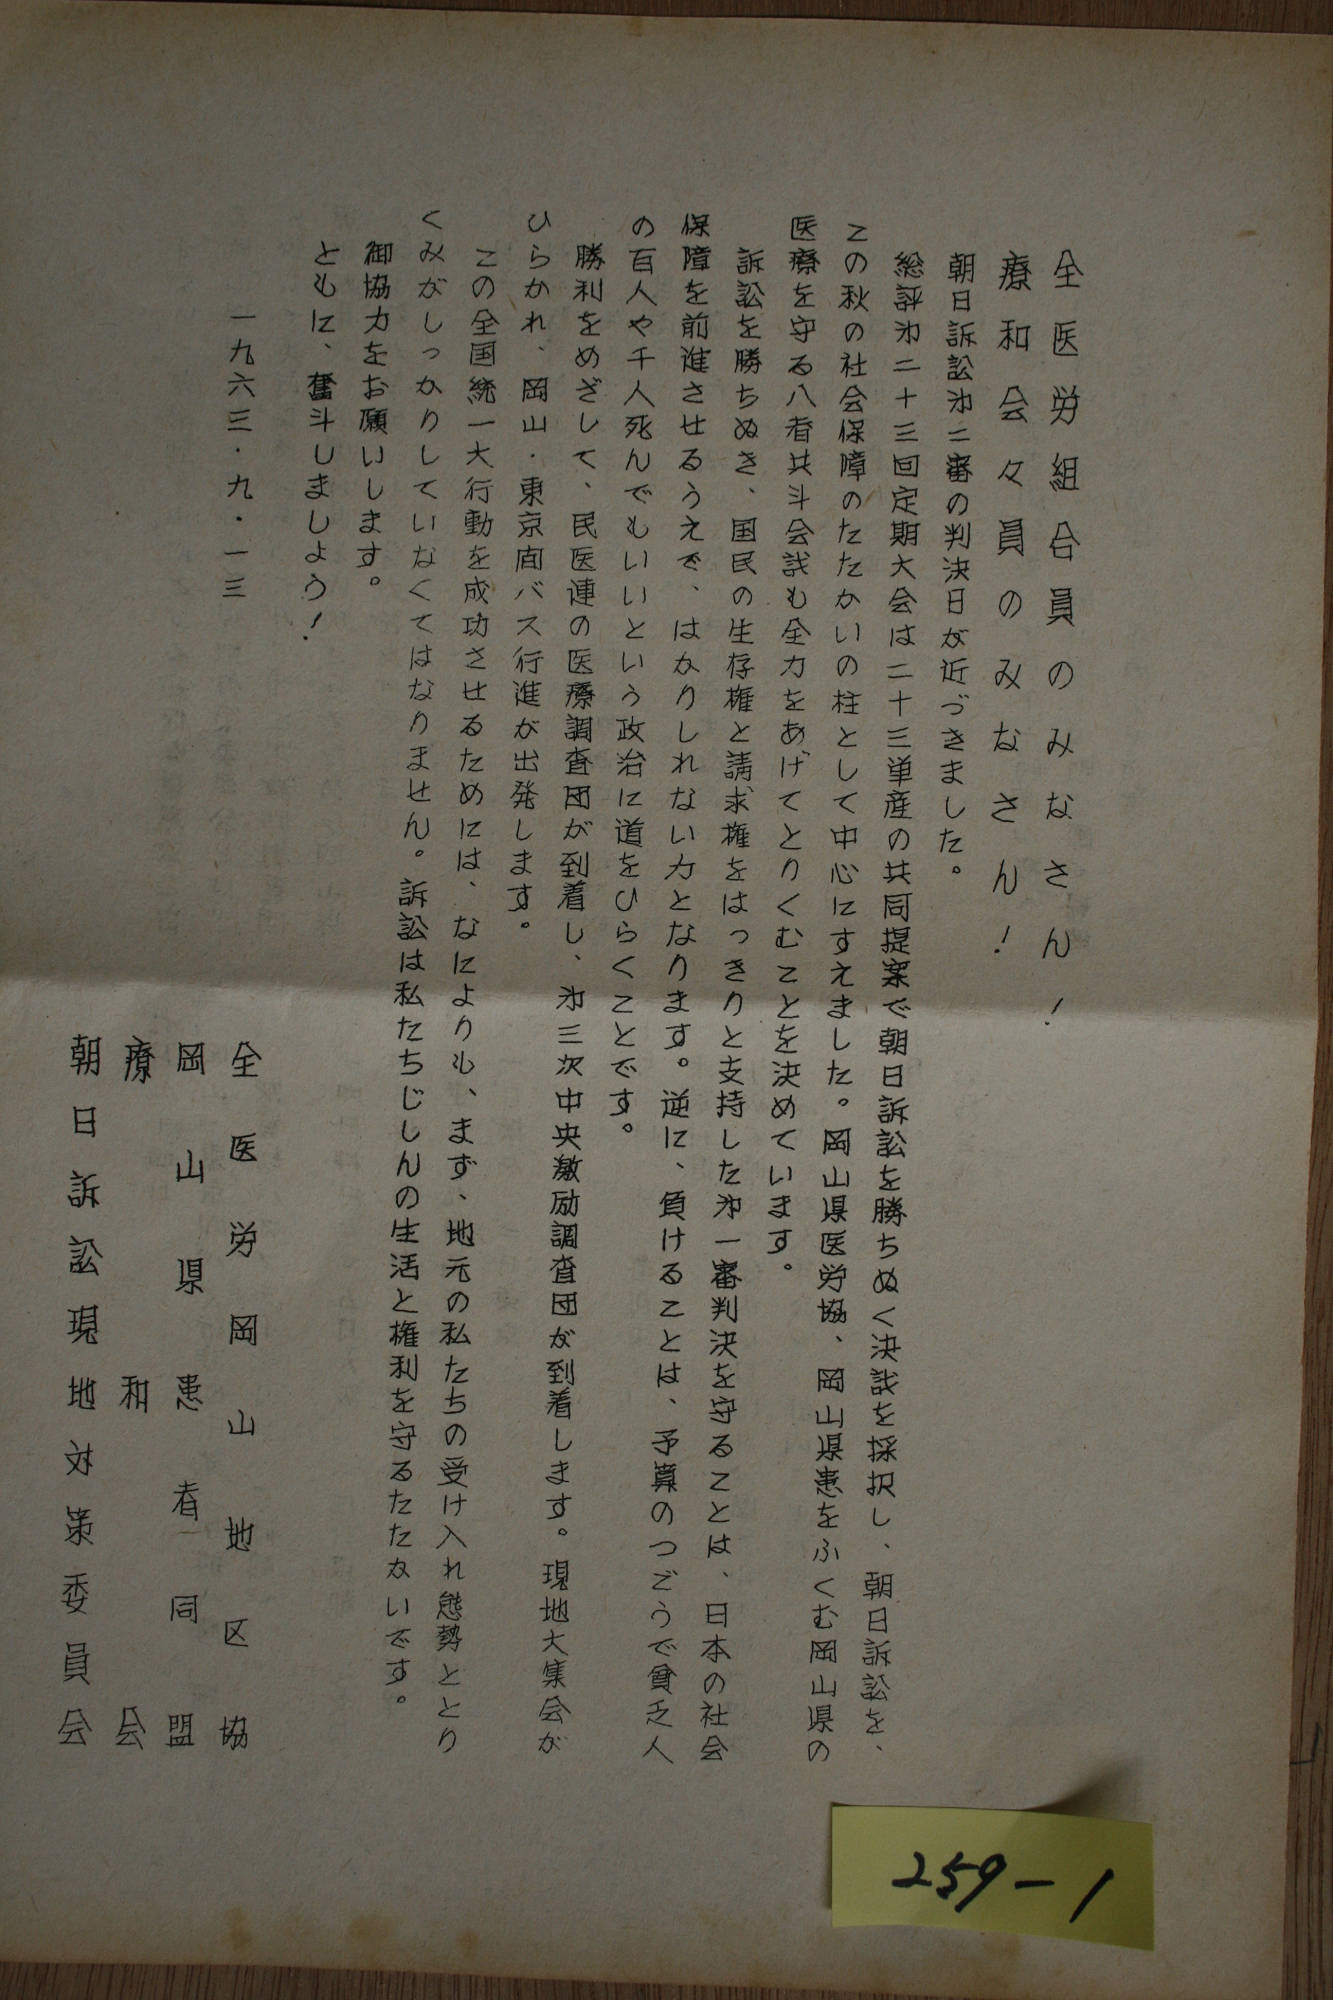 全医労組合員のみなさん!
療和会々員のみなさん!
朝日訴訟㐧二審の判決日が近づきました。
総評㐧二十三回定期大会は二十三単産の共同提案で朝日訴訟を勝ちぬく決議を採択し、朝日訴訟を、
この秋の社会保障のたたかいの柱として中心にすえました。岡山県医労協、岡山県患をふくむ岡山県の
医療を守る八者共斗会議も全力をあげてとりくむことを決めています。
訴訟を勝ちぬき、国民の生存権と請求権をはっきりと支持した㐧一審判決を守ることは、日本の社会
保障を前進させるうえで、はかりしれない力となります。逆に、負けることは、予算のつごうで貧乏人
の百人や千人死んでもいいという政治に道をひらくことです。
勝利をめざして、民医連の医療調査団が到着し、㐧三次中央激励調査団が到着します。現地大集会が
ひらかれ、岡山・東京间バス行進が出発します。
この全国統一大行動を成功させるためには、なによりも、まず、地元の私たちの受け入れ態勢ととり
くみがしっかりしていなくてはなりません。訴訟は私たちじしんの生活と権利を守るたたかいです。
御協力をお願いします。
ともに、奮斗しましよう!
一九六三・九・一三
全医労岡山地区協
岡山県患者同盟
療和会
朝日訴訟現地対策委員会
259-1